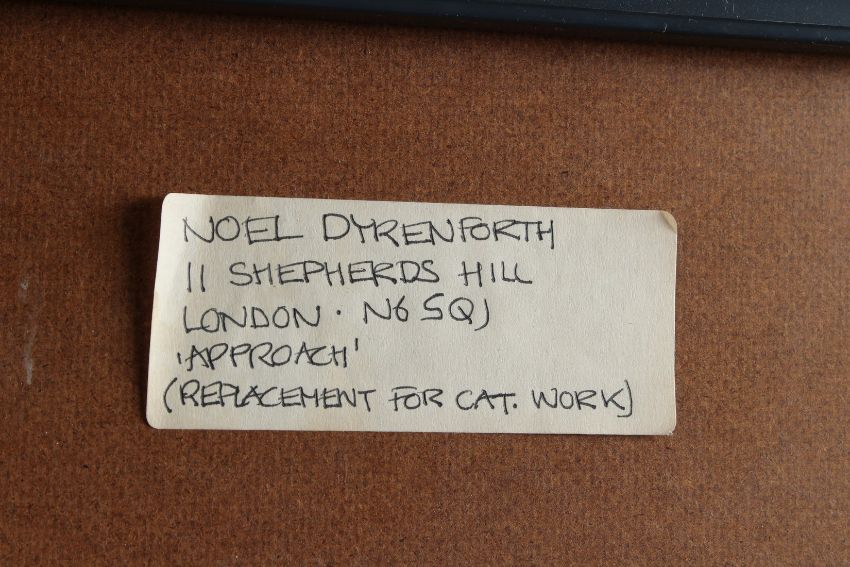 NOEL DYRENFORTH
11 SHEPHERDS HILL
LONDON · N6 5QJ
'APPROACH'
(REPLACEMENT FOR CAT. WORK)